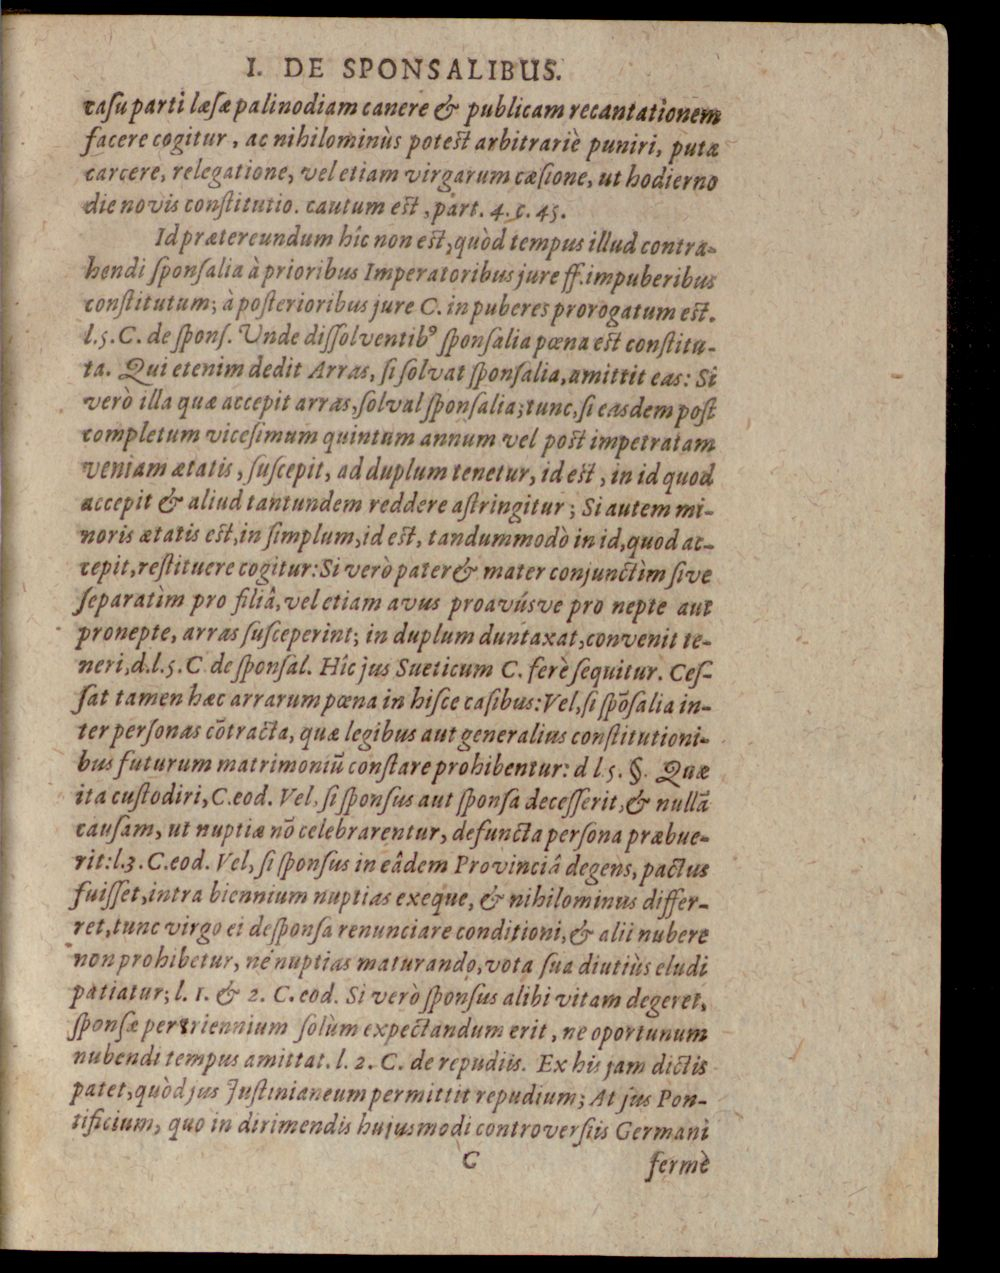 I. DE SPONSALIBUS.
casu parti læsæ palinodiam canere & publicam recantationem
facere cogitur, ac nihilominùs potest arbitrariè puniri, putæ
carcere, relegatione, vel etiam virgarum cæsione, ut hodierno
die novis constitutio. cautum est, part. 4. c. 45.
Id prætereundum hîc non est, quòd tempus illud contra-
hendi sponsalia à prioribus Imperatoribus jure ff. impuberibus
constitutum; à posterioribus jure C. in puberes prorogatum est.
l. 5. C. de spons. Unde dissolventibꝰ sponsalia pœna est constitu-
ta. Qui etenim dedit Arras, si solvat sponsalia, amittit eas: Si
verò illa quæ accepit arras, solval sponsalia; tunc, si easdem post
completum vicesimum quintum annum vel post impetratam
veniam ætatis, suscepit, ad duplum tenetur, id est, in id quod
accepit & aliud tantundem reddere astringitur; Si autem mi-
noris ætatis est, in simplum, id est, tandummodò in id, quod ac-
cepit, restituere cogitur: Si verò pater & mater conjunctìm sive
separatìm pro filiâ, vel etiam avus proavúsve pro nepte aut
pronepte, arras susceperint; in duplum duntaxat, convenit te-
neri, d. l. 5. C de sponsal. Hîc jus Sueticum C. ferè sequitur. Ces-
sat tamen hæc arrarum pœna in hisce casibus: Vel, si spõsalia in-
ter personas cõtracta, quæ legibus aut generalius constitutioni-
bus futurum matrimoniũ constare prohibentur: d l. 5. §. Quæ
ita custodiri, C. eod. Vel, si sponsus aut sponsa decesserit, & nullã
causam, ut nuptiæ nõ celebrarentur, defuncta persona præbue-
rit: l. 3. C. eod. Vel, si sponsus in eâdem Provinciâ degens, pactus
fuisset, intra biennium nuptias exeque, & nihilominus differ-
ret, tunc virgo ei desponsa renunciare conditioni, & alii nubere
non prohibetur, né nuptias maturando, vota sua diutiùs eludi
patiatur; l. 1. & 2. C. eod. Si verò sponsus alibi vitam degeret,
sponsæ per triennium solùm expectandum erit, ne oportunum
nubendi tempus amittat. l. 2. C. de repudiis. Ex his jam dictis
patet, quòd jus Justinianeum permittit repudium; At jus Pon-
tificium, quo in dirimendis hujusmodi controversiis Germani
C fermè